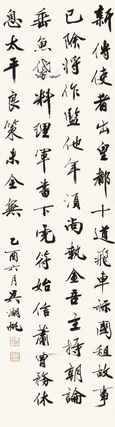 新傳使者出皇都十道飛車詠國租故事
已除將作監他年須尚執金吾主持朝論
垂魚袋料理軍書下虎符始信蕭曹務休
息太平良策未全無
乙酉六月吳湖帆